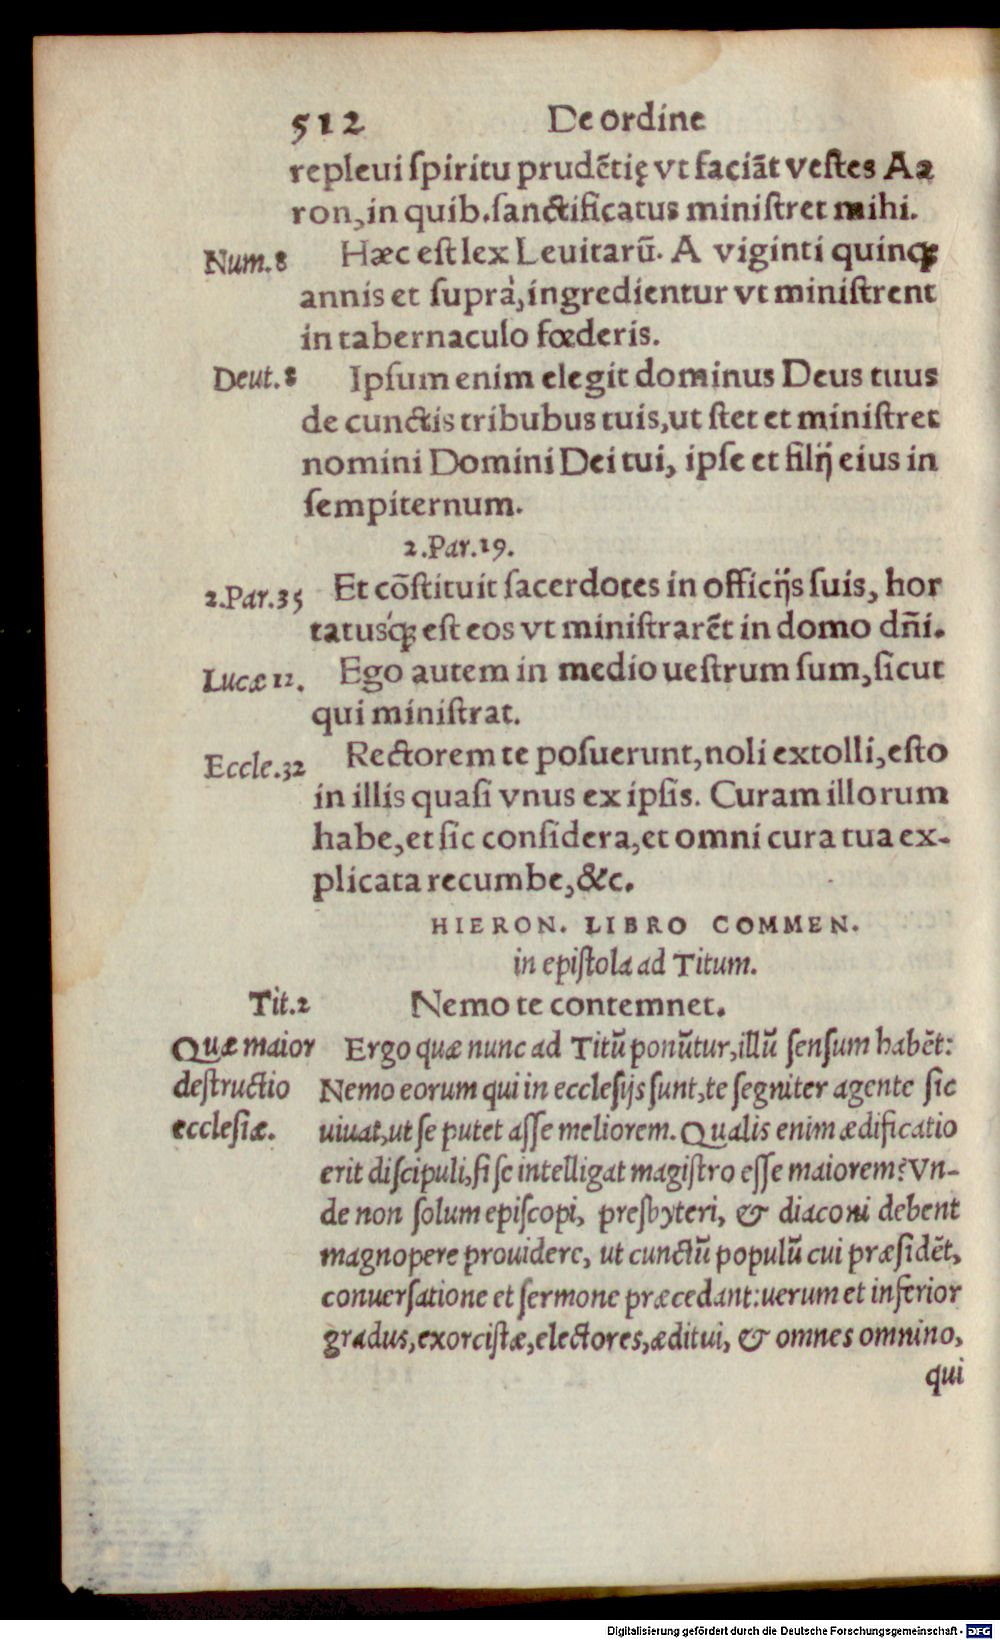 512 De ordine
repleui ſpiritu prudētię vt faciāt veſtes Aa
ron, in quib. ſanctificatus miniſtret mihi.
Num. 8 Hæc eſt lex Leuitarū. A viginti quinqꝫ
annis et ſuprà, ingredientur vt miniſtrent
in tabernaculo fœderis.
Deut. 8 Ipſum enim elegit dominus Deus tuus
de cunctis tribubus tuis, ut ſtet et miniſtret
nomini Domini Dei tui, ipſe et filĳ eius in
ſempiternum.
2. Par. 19.
2. Par. 35 Et cōſtituit ſacerdotes in officĳs ſuis, hor
tatusq́ꝫ eſt eos vt miniſtrarēt in domo dñi.
Lucæ 12. Ego autem in medio ueſtrum ſum, ſicut
qui miniſtrat.
Eccle. 32 Rectorem te poſuerunt, noli extolli, eſto
in illis quaſi vnus ex ipſis. Curam illorum
habe, et ſic conſidera, et omni cura tua ex-
plicata recumbe, &c.
HIERON. LIBRO COMMEN.
in epiſtola ad Titum.
Tit. 2 Nemo te contemnet.
Quæ maior Ergo quæ nunc ad Titū ponūtur, illū ſenſum habēt:
deſtructio Nemo eorum qui in eccleſĳs ſunt, te ſegniter agente ſic
eccleſiæ. uiuat, ut ſe putet aſſe meliorem. Qualis enim ædificatio
erit diſcipuli, ſi ſe intelligat magiſtro eſſe maiorem? Vn-
de non ſolum epiſcopi, presbyteri, & diaconi debent
magnopere prouidere, ut cunctū populū cui præſidēt,
conuerſatione et ſermone præcedant: uerum et inferior
gradus, exorciſtæ, electores, æditui, & omnes omnino,
qui
Digitalisierung gefördert durch die Deutsche Forschungsgemeinschaft - DFG